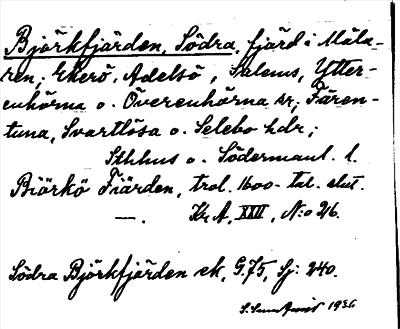 Björkfjärden, Södra, fjärd i Mäla-
ren; Ekerö, Adelsö, Salems, Ytter-
enhörna o. Överenhörna sr; Fären-
tuna, Svartlösa o. Selebo hdr;
Sthlms o. Södermanl. l.
Biörkö Fiärden, trol. 1600-tal. slut.
—. Kr. A, XXII, N:o 26.
Södra Björkfjärden ek, G.75, Sj: 240.
1936